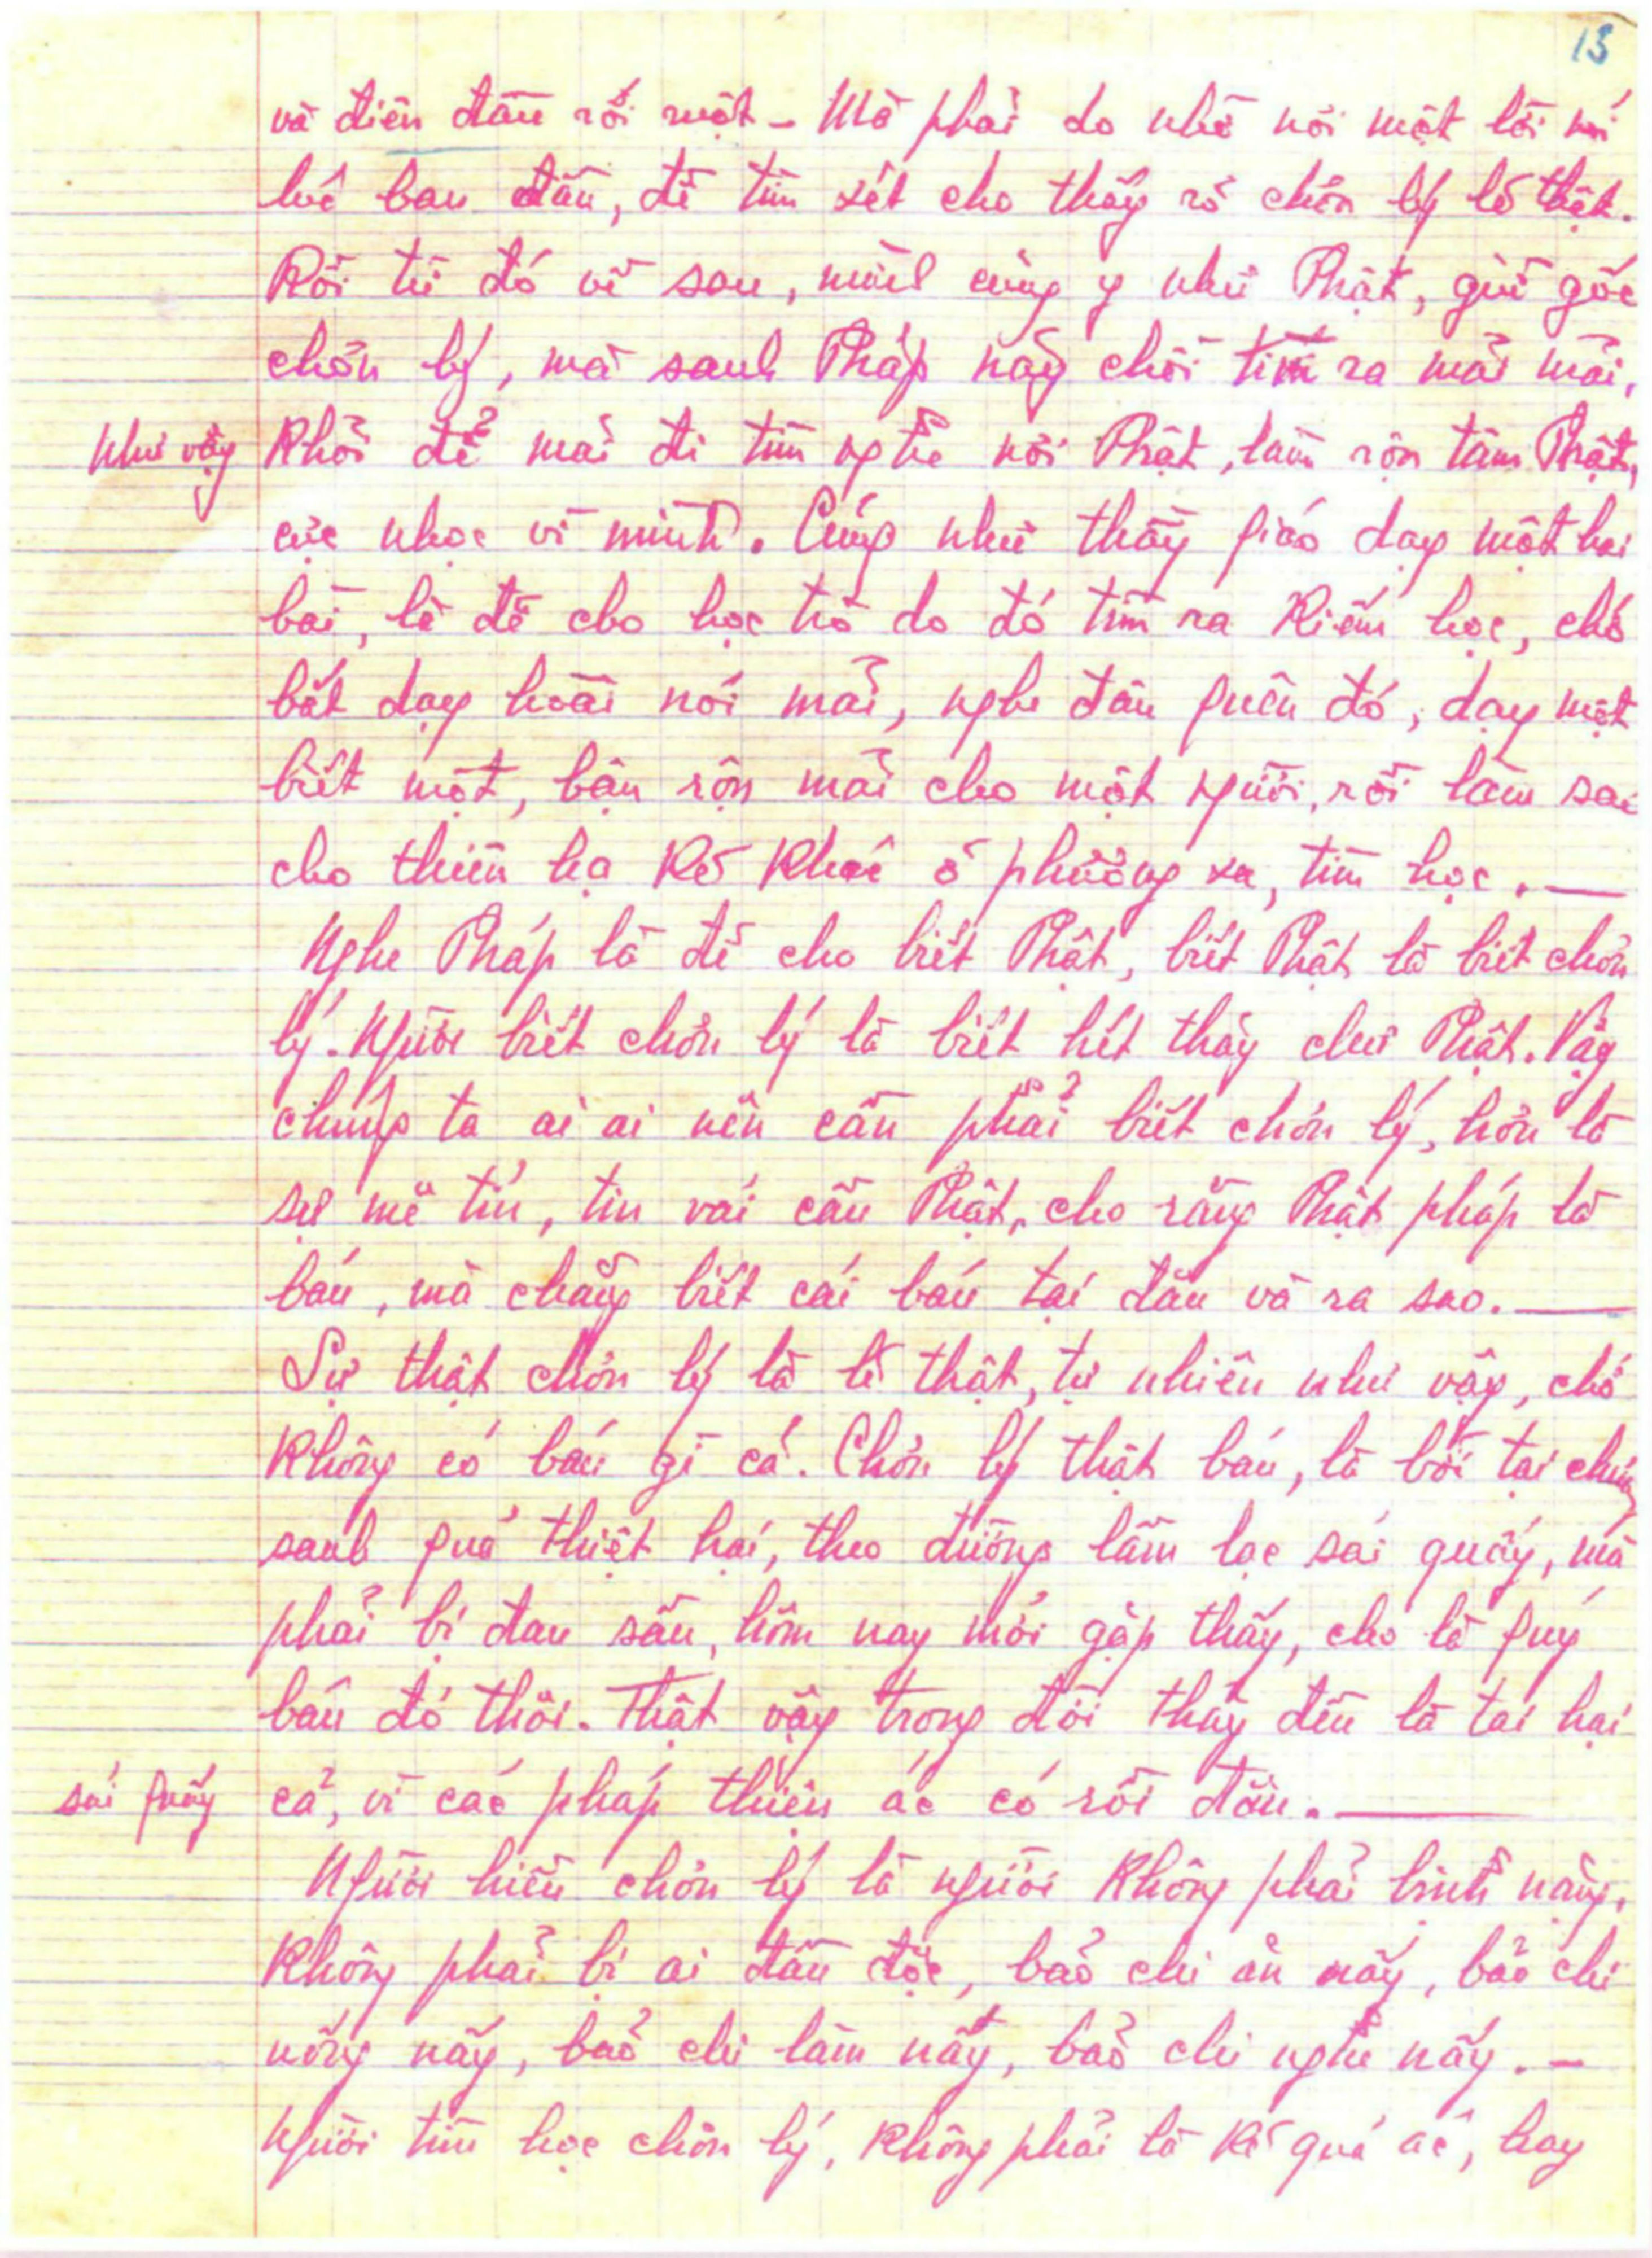 13
và điên đầu rối ruột - Mà phải do nhờ nơi một lời nói
lúc ban đầu, để tìm xét cho thấy rõ chơn lý lẽ thật.
Rồi từ đó về sau, mình cũng y như Phật, giữ gốc
chơn lý, mà sanh Pháp nảy chồi tìm ra mãi mãi,
Như vậy
Khỏi để mãi đi tìm nghe nơi Phật, làm rộn tâm Phật,
cực nhọc vì mình. Cũng như thầy giáo dạy một hai
bài, là để cho học trò do đó tìm ra kiếm học, chớ
bắt dạy hoài nói mãi, nghe đâu quên đó, dạy một
biết một, bận rộn mãi cho một người, rồi làm sao
cho thiên hạ kẻ khác ở phương xa, tìm học. —
Nghe Pháp là để cho biết Phật, biết Phật là biết chơn
lý. Người biết chơn lý là biết hết thảy chư Phật. Vậy
chúng ta ai ai nên cần phải biết chơn lý, hơn là
sự mê tín, tin vái cầu Phật, cho rằng Phật pháp là
báu, mà chẳng biết cái báu tại đâu và ra sao. —
Sự thật chơn lý là lẽ thật, tự nhiên như vậy, chớ
Không có báu gì cả. Chơn lý thật báu, là bởi tại chúng
sanh quá thiệt hại, theo đường lầm lạc sái quấy, mà
phải bị đau sầu, hôm nay mới gặp thấy, cho là quý
báu đó thôi. Thật vậy trong đời thảy đều là tai hại
sái quấy
cả, vì các pháp thiện ác có rồi đâu. —
Người hiểu chơn lý là người không phải bịnh nặng,
Không phải bị ai đầu độc, bảo chi ăn nấy, bảo chi
uống nấy, bảo chi làm nấy, bảo chi nghe nấy. —
Người tìm học chơn lý, không phải là kẻ quá ác, hay